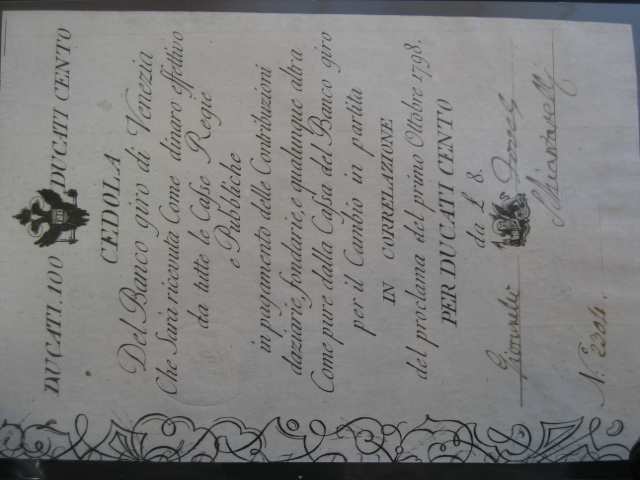 DUCATI.100 DUCATI CENTO
CEDOLA
Del Banco giro di Venezia
Che Sarà ricevuta Come dinaro effettivo
da tutte le Casse Regie
e Pubbliche
in pagamento delle Contribuzioni
daziarie, fondarie, e qualunque altra
Come pure dalla Cassa del Banco giro
per il Cambio in partita
IN CORRELAZIONE
del proclama del primo Ottobre 1798.
PER DUCATI CENTO
da £ 8.
N.° 2304.